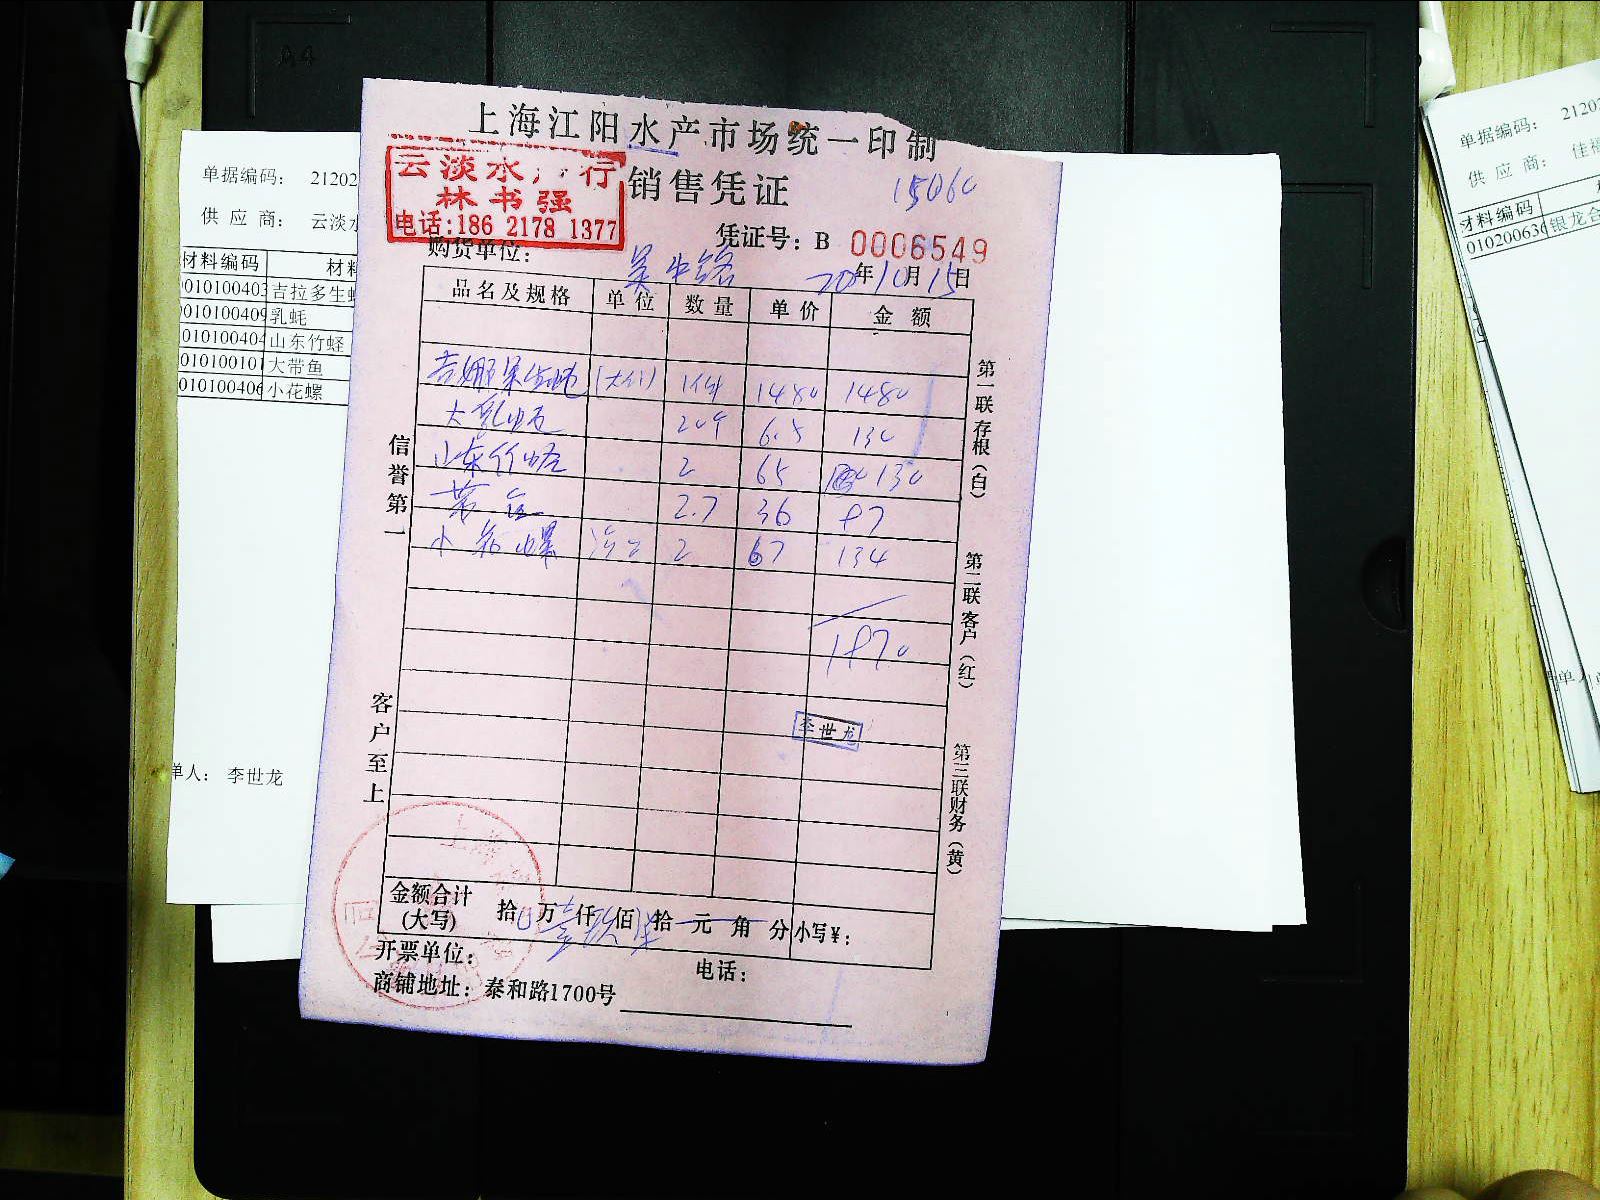 A4
上海江阳水产市场统一印制
云淡水产行
林书强
电话:186 2178 1377
销售凭证
15060
凭证号: B 0006549
购货单位:
20年10月15日
品名及规格 单位 数量 单价 金额
1480 1480
大乳蚝 6.5 130
山东竹蛏 2 65 130
2.7 36 97
小花螺 2 67 134
1970
李世龙
金额合计(大写) 拾 万 壹 仟 玖 佰 拾 元 角 分 小写¥:
开票单位: 电话:
商铺地址: 泰和路1700号
信誉第一
客户至上
第一联存根(白)
第二联客户(红)
第三联财务(黄)
单据编码: 21202
供应商: 云淡水
材料编码 材料
010100403 吉拉多生蚝
010100409 乳蚝
010100404 山东竹蛏
010100101 大带鱼
010100406 小花螺
单人: 李世龙
单据编码: 21202
供应商: 佳禧
材料编码
010200636 银龙